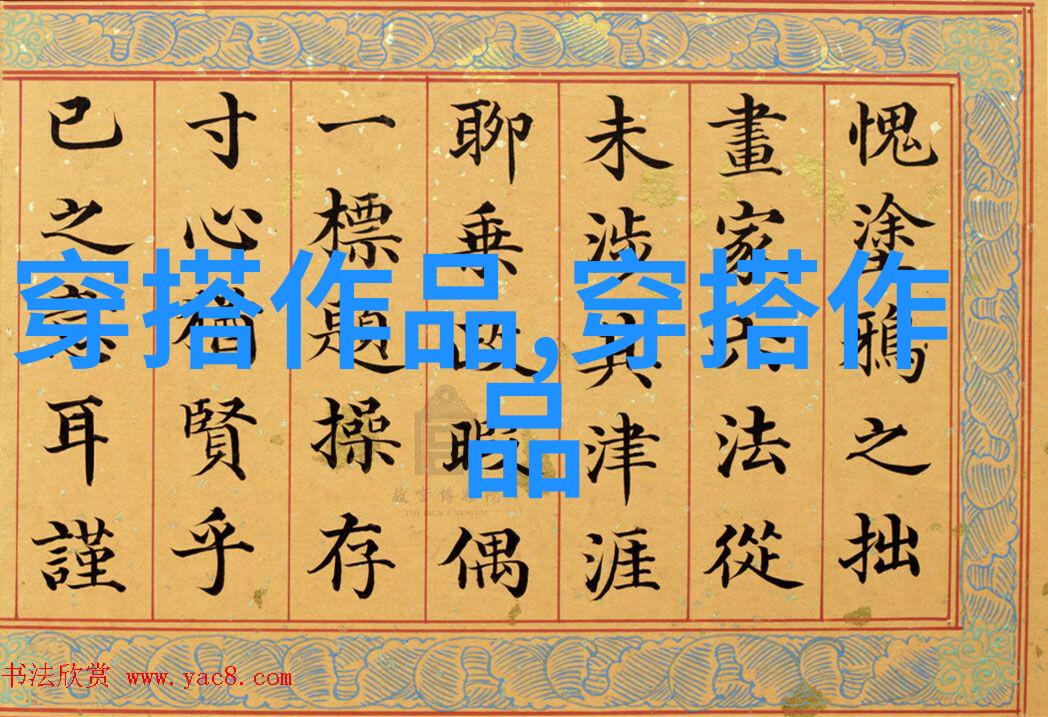 愧塗鴉之拙
畫家法從
未涉其津涯
聊乘政暇偶
一標題操存
寸心猶賢乎
已之意耳謹
穿搭作品,穿搭作
品
故宮博物院
THE PALACE MUSEUM
书法欣赏 www.yac8.com